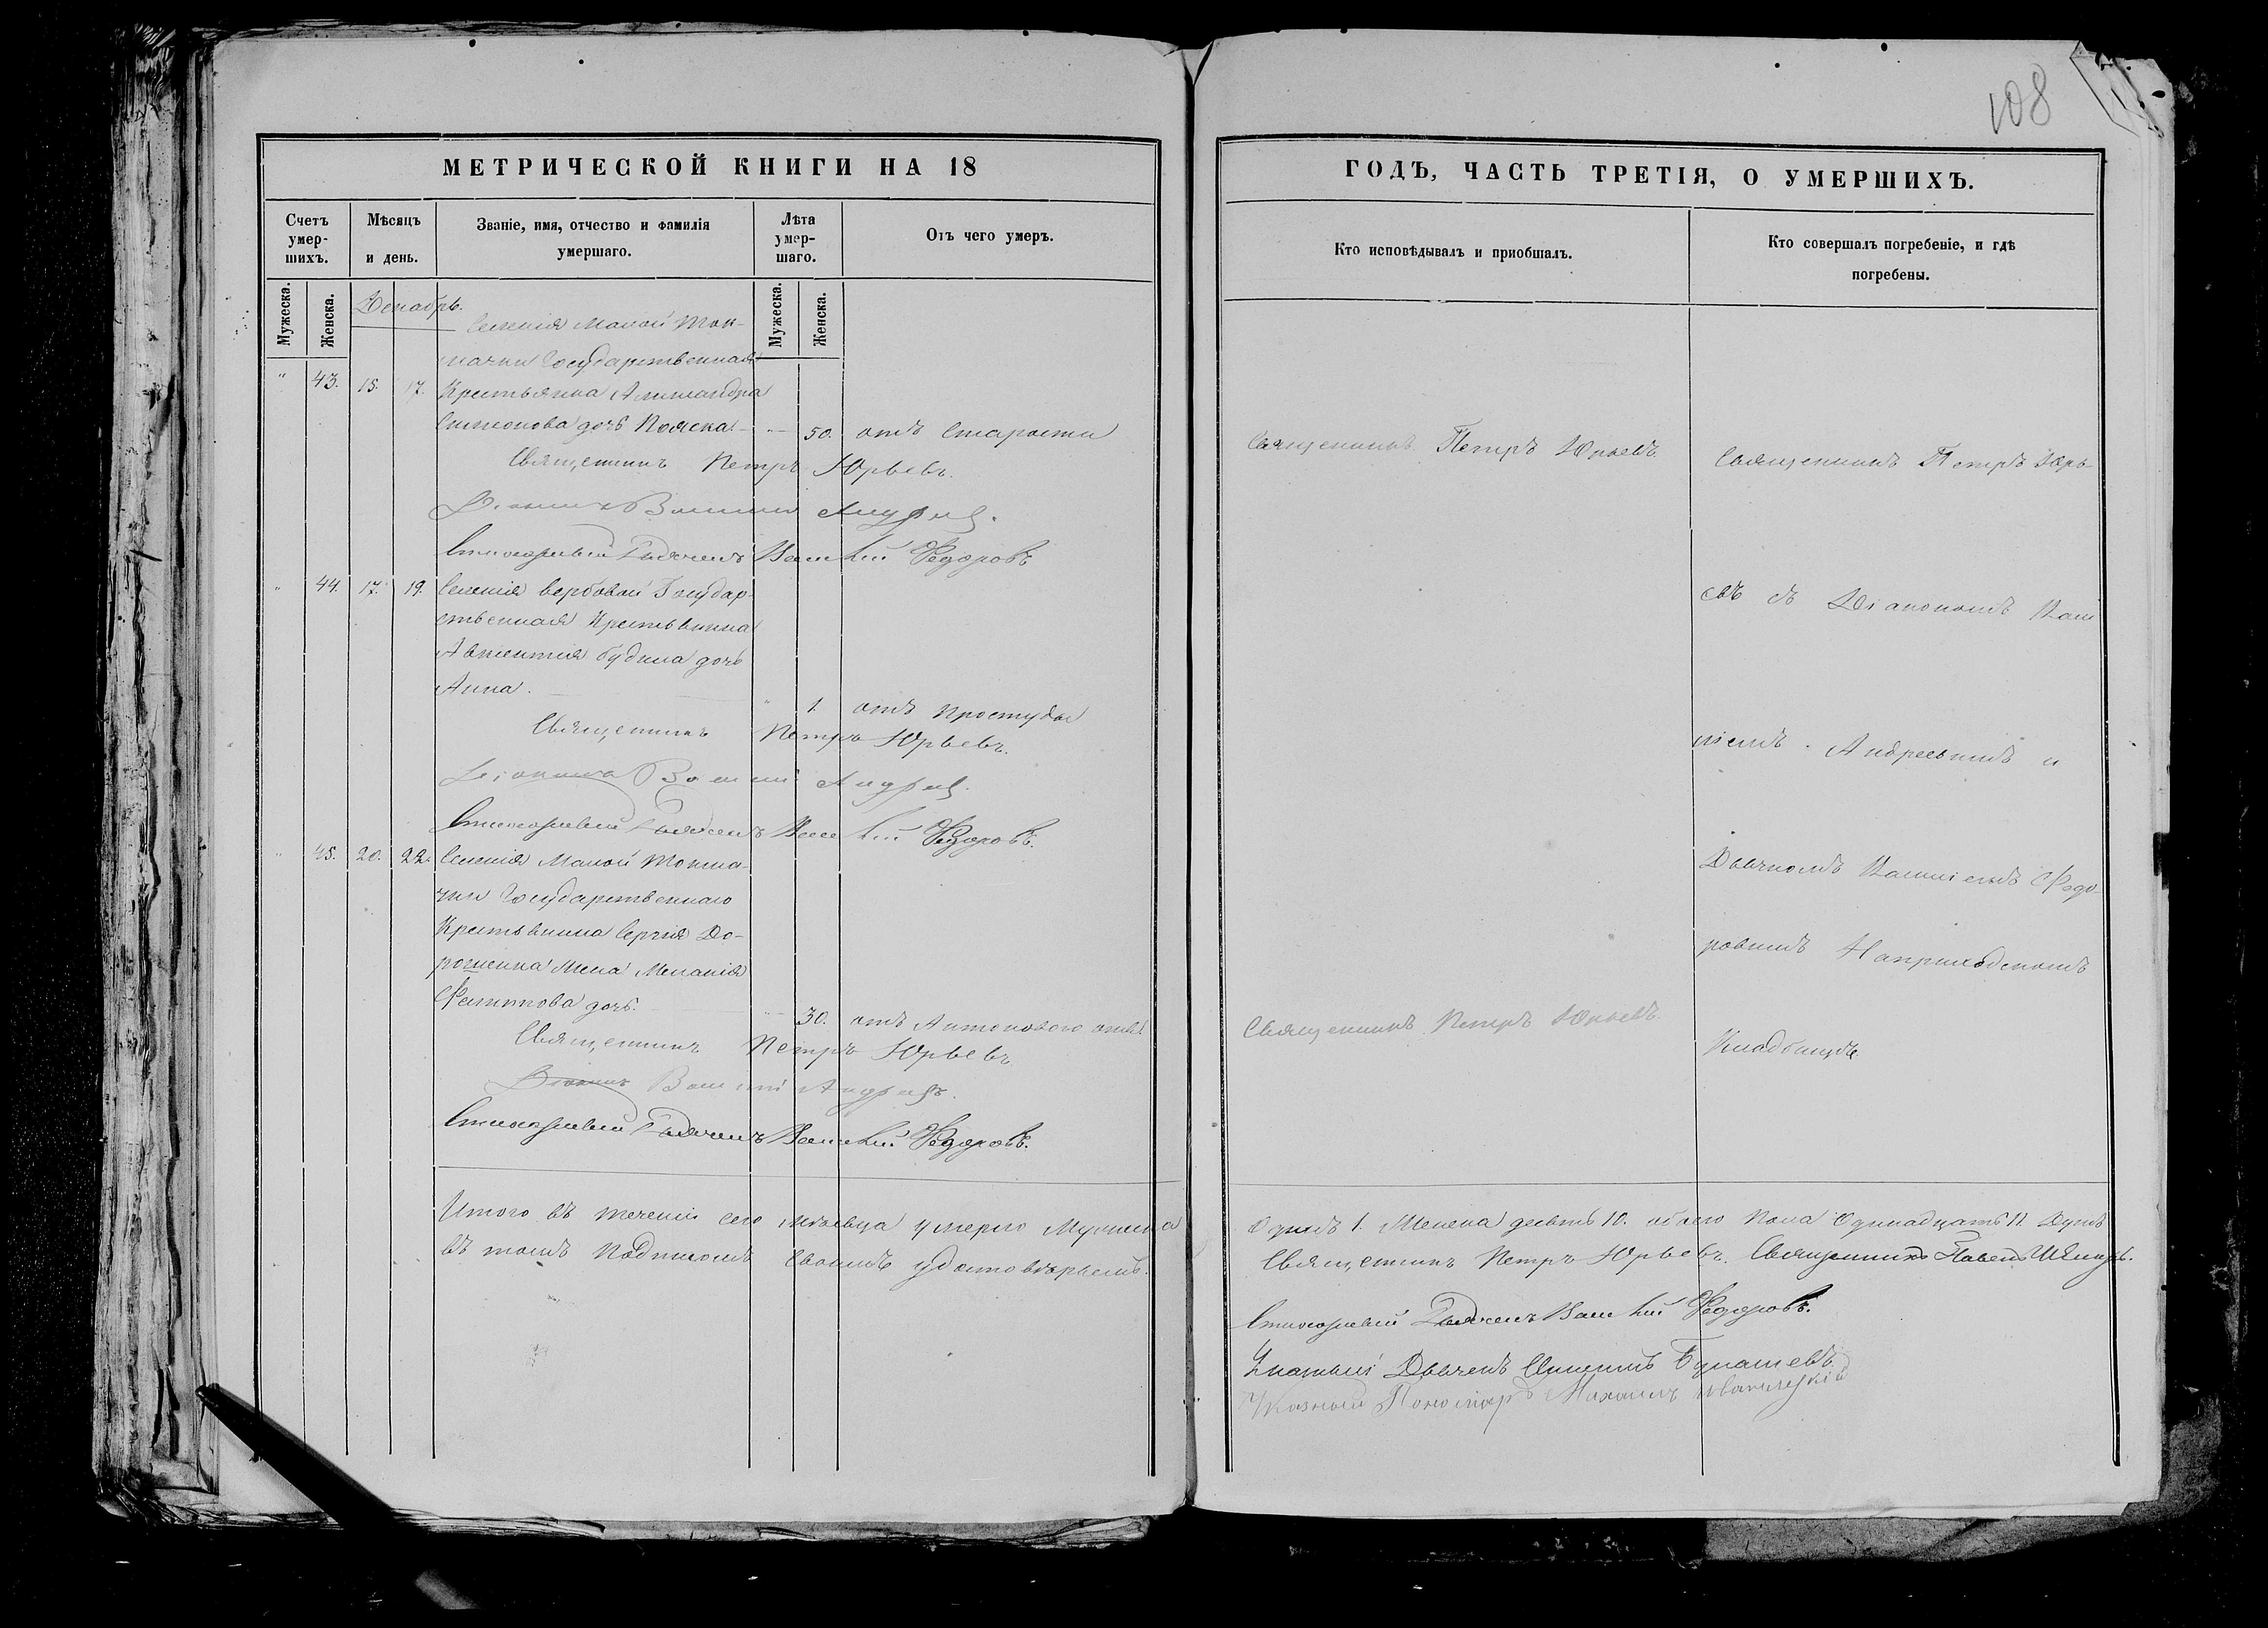 108
МЕТРИЧЕСКОЙ КНИГИ НА 18
ГОДЪ, ЧАСТЬ ТРЕТІЯ, О УМЕРШИХЪ.
Счетъ умер-шихъ.
Мѣсяцъ и день.
Званіе, имя, отчество и фамилія умершаго.
Лѣта умер-шаго.
Отъ чего умеръ.
Кто исповѣдывалъ и пріобщалъ.
Кто совершалъ погребеніе, и гдѣ погребены.
Мужеска.
Женска.
Мужеска.
Женска.
Декабрь.
Селенія Малой Ток-
мачки Государственная
" 43. 15. 17. Крестьянка Александра
Симеонова дочь 50. отъ Старости
Священникъ Петръ Юрьевъ.
Діаконъ Василій Андреев.
Стихарный Дьячекъ Василий Федоровъ
" 44. 17. 19. Селенія Вербовой Государ-
ственная Крестьянина
Авксентия дочь
Анна. " 1. отъ простуды
Священникъ Петръ Юрьевъ.
Діаконъ Василій Андреев.
Стихарный Дьячекъ Василий Федоровъ.
" 45. 20. 22. Селенія Малой Токма-
чки Государственнаго
Крестьянина Сергія До-
рошенка жена Меланія
дочь. 30. отъ Антонового огня
Священникъ Петръ Юрьевъ
Діаконъ Василій Андреевъ.
Стихарный Дьячекъ Василий Федоровъ.
Итого въ теченіи сего мѣсяца умерло Мужеска
въ томъ подписомъ своимъ удостовѣряемъ.
Священникъ Петръ Юрьевъ.
Священникъ Петръ Юрьевъ.
Священникъ Петръ Юрь-
евъ съ Діакономъ Васи
ліемъ Андреевымъ и
Дьячкомъ Василіемъ Федо-
ровымъ На приходскомъ
Кладбищѣ
Одинъ 1. Женска десять 10. обоего Пола Одинадцать 11. Душъ
Священникъ Петръ Юрьевъ. Священникъ Павелъ
Стихарный Дьячекъ Василий Федоровъ.
Дьячекъ
Указный Пономарь Михаилъ